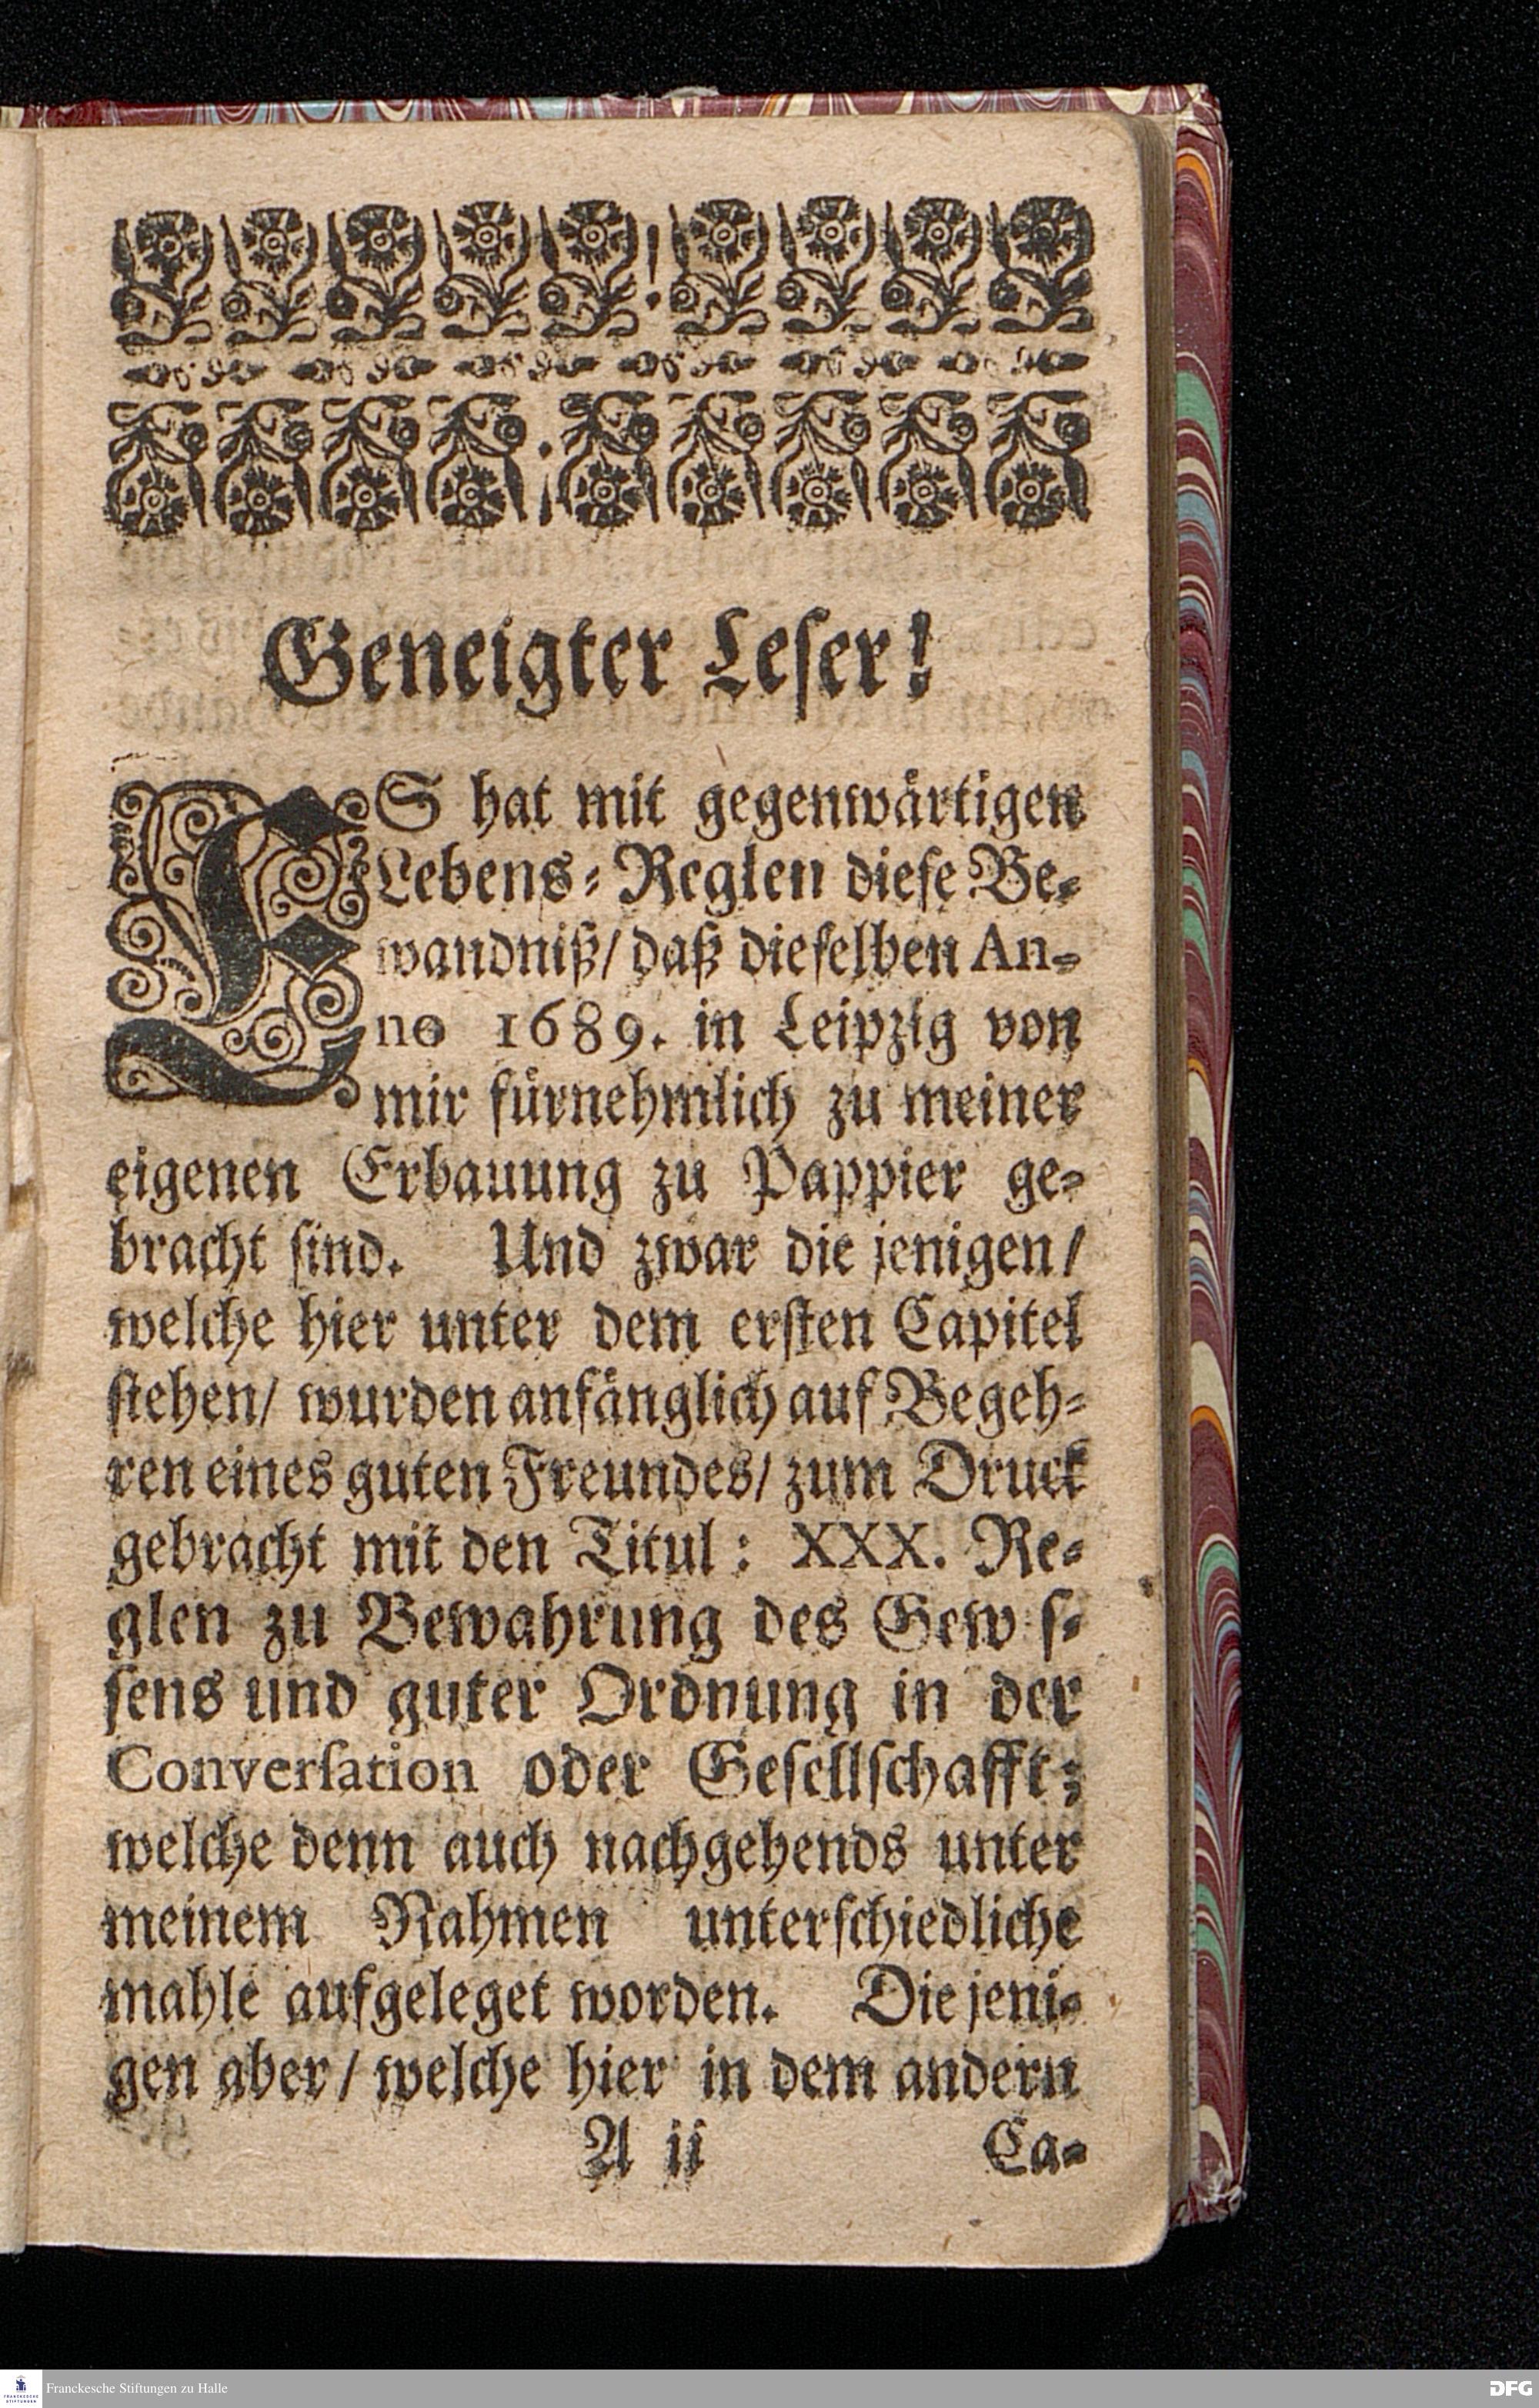 Geneigter Leser!
ES hat mit gegenwärtigen
Lebens-Reglen diese Be-
wandniß/ daß dieselben An-
no 1689. in Leipzig von
mir fürnehmlich zu meiner
eigenen Erbauung zu Pappier ge-
bracht sind. Und zwar die jenigen/
welche hier unter dem ersten Capitel
stehen/ wurden anfänglich auf Begeh-
ren eines guten Freundes/ zum Druck
gebracht mit den Titul: XXX. Re-
glen zu Bewahrung des Gew s-
sens und guter Ordnung in der
Conversation oder Gesellschafft;
welche denn auch nachgehends unter
meinem Nahmen unterschiedliche
mahle aufgeleget worden. Die jeni-
gen aber/ welche hier in dem andern
A ii Ca-
FRANCKESCHE
STIFTUNGEN
Franckesche Stiftungen zu Halle
DFG